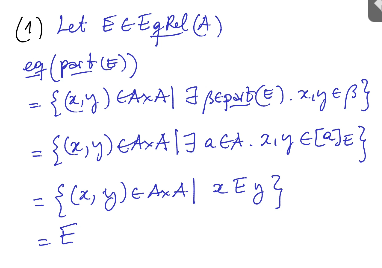 (1) Let E ∈ EqRel(A)
eq(part(E))
= {(x,y) ∈ A×A | ∃ β∈part(E). x,y ∈ β}
= {(x,y) ∈ A×A | ∃ a∈A. x,y ∈ [a]_E}
= {(x,y) ∈ A×A | x E y}
= E